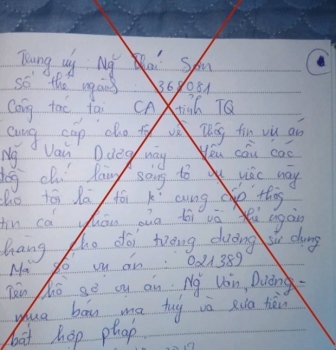 Trung úy : Ng Thái Sơn
Số thẻ ngành : 368081
Công tác tại CA tỉnh TQ
cung cấp cho tôi về Thông tin vụ án
Ng Văn Dương này yêu cầu các
đồng chí làm sáng tỏ vụ việc này
cho tôi là tôi k cung cấp thông
tin cá nhân của tôi và thẻ ngân
hàng cho đối tượng dương sử dụng
Mã số vụ án : 021389
Tên hồ sơ vụ án : Ng Văn Dương -
mua bán ma tuý và rửa tiền
bất hợp pháp